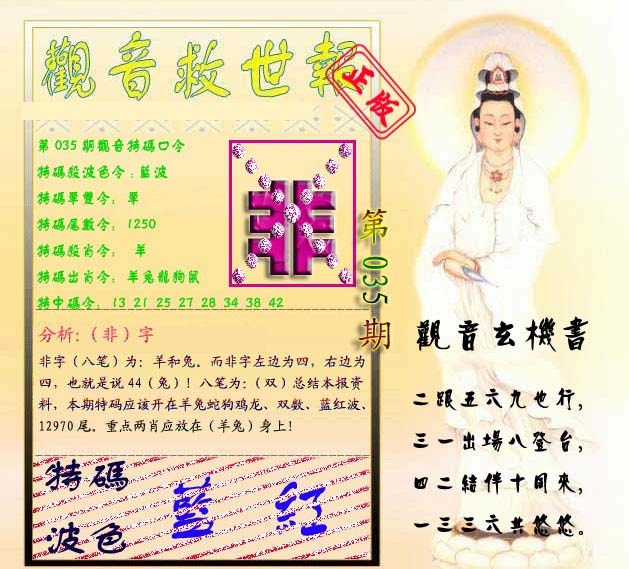 觀音救世報
正版
第035期觀音特碼口令
特碼殺波色令:藍波
特碼單雙令: 單
特碼尾數令: 1250
特碼殺肖令: 羊
特碼出肖令: 羊兔龍狗鼠
特中碼令: 13 21 25 27 28 34 38 42
非
第035期
分析:(非)字
非字(八笔)为:羊和兔。而非字左边为四,右边为
四,也就是说44(兔)!八笔为:(双)总结本报资
料,本期特码应该开在羊兔蛇狗鸡龙、双数、蓝红波、
12970尾。重点两肖应放在(羊兔)身上!
特碼
波色
藍 紅
觀音玄機書
二跟五六九也行,
三一出場八登台,
四二結伴十同來,
一三三六共悠悠。